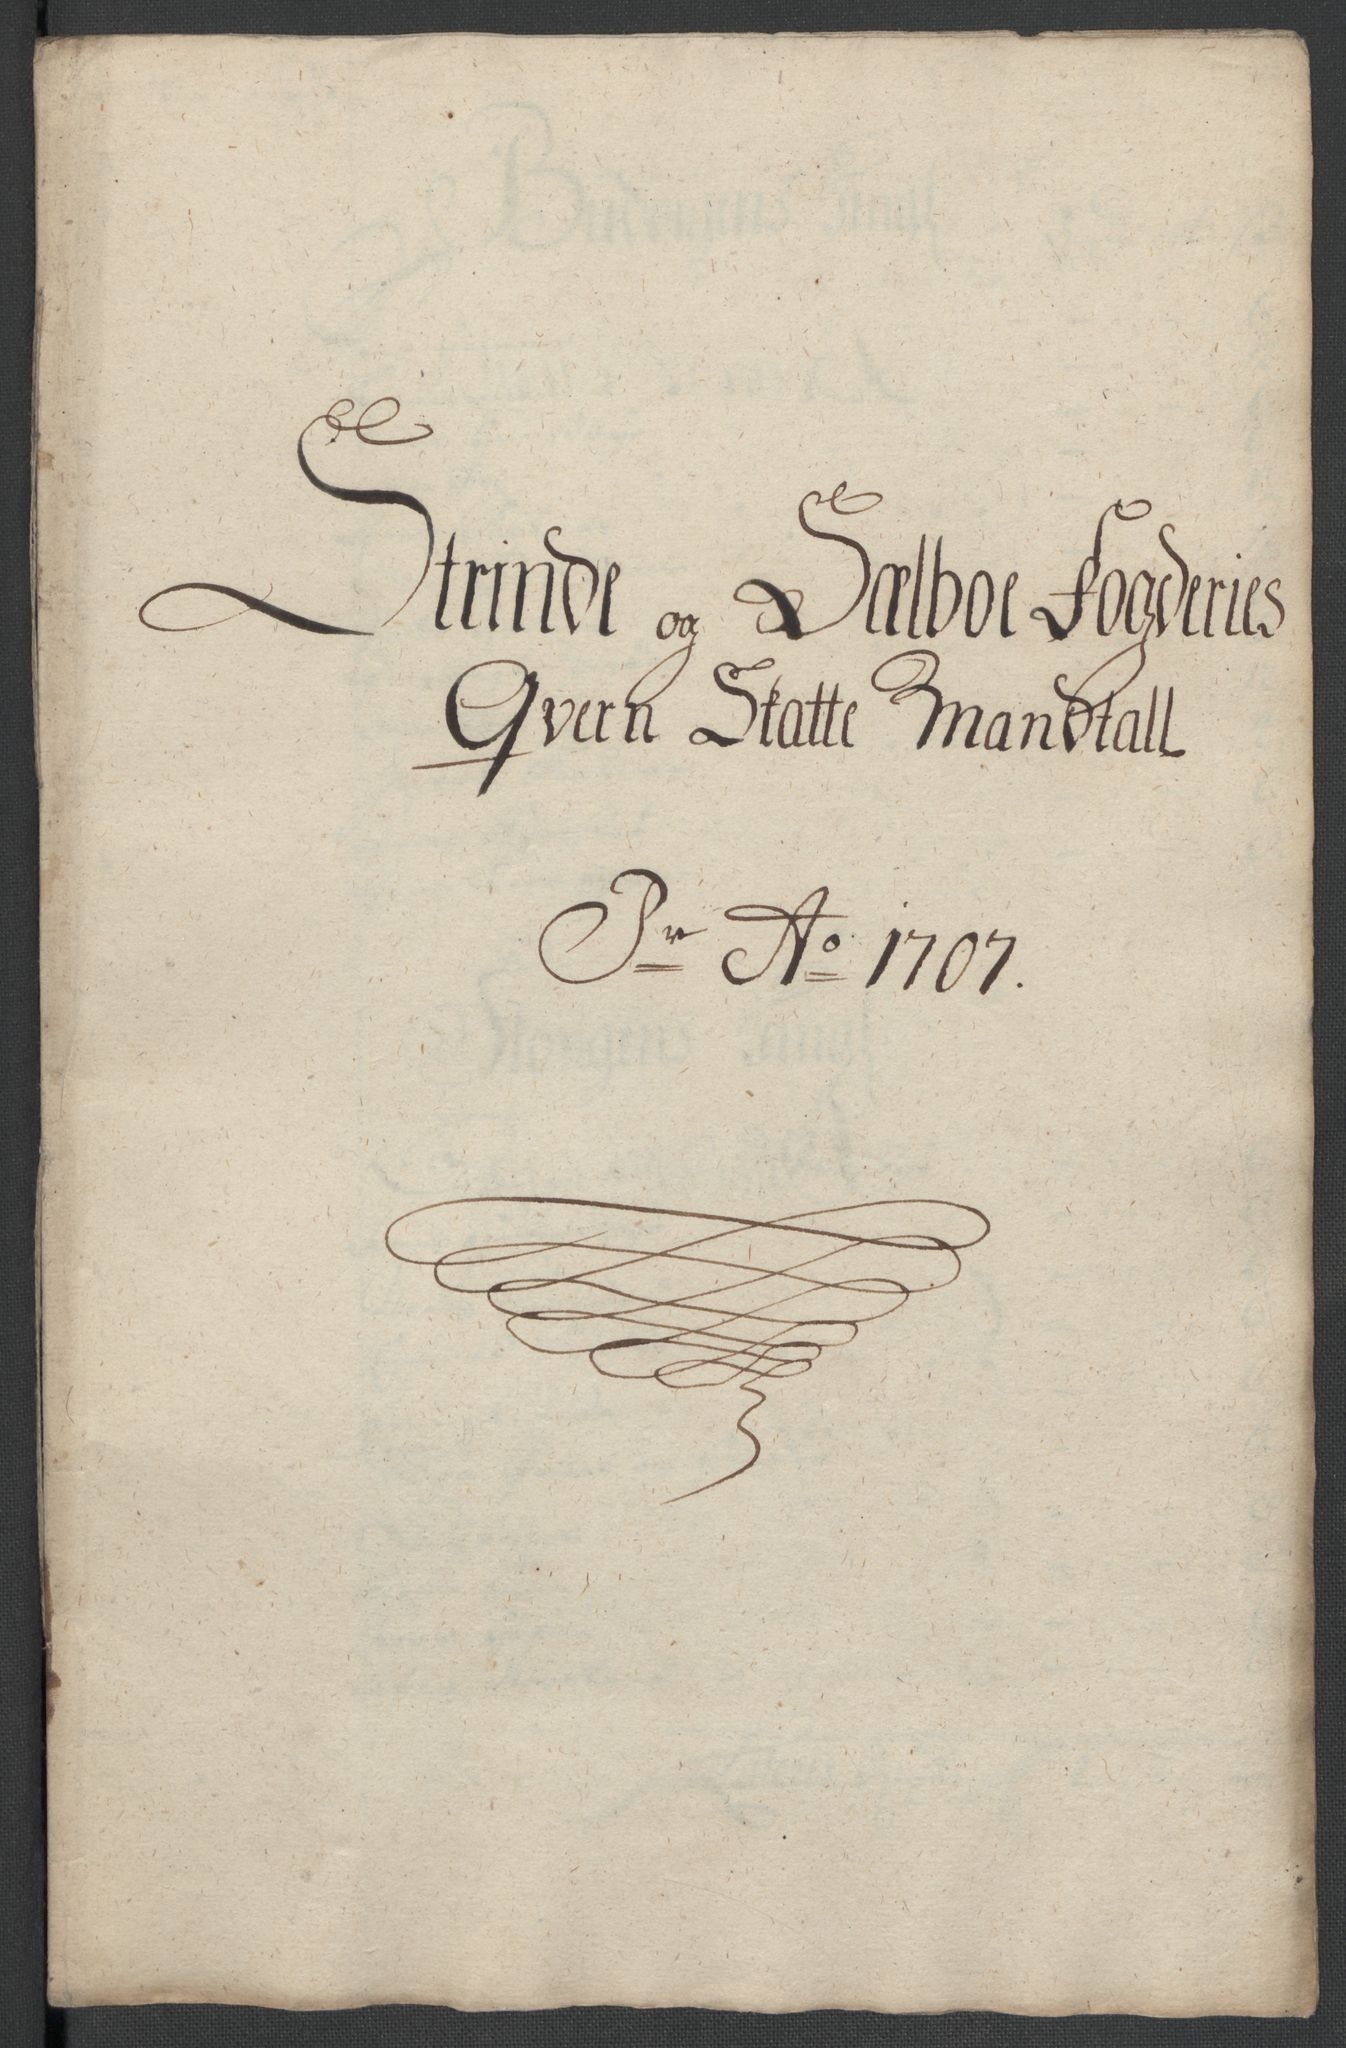 Strinde og Sælboe Fogderies
Qvern Skatte Mandtall
Pr Ao 1707.